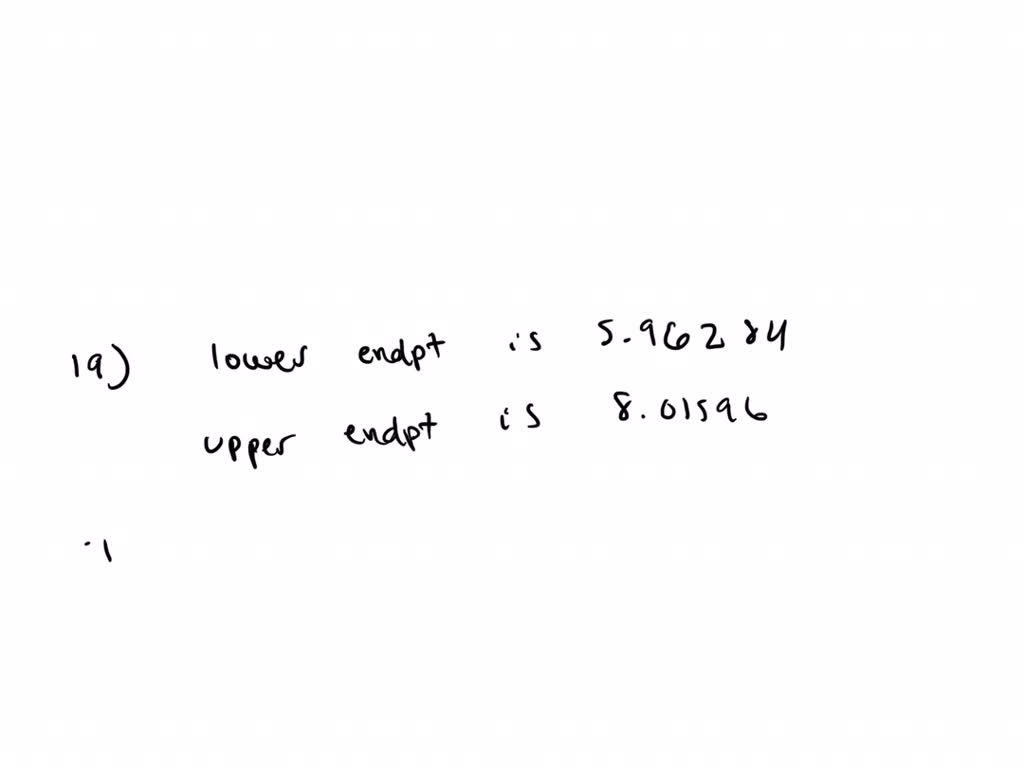 19) lower endpt is 5.96284
upper endpt is 8.01596
.1